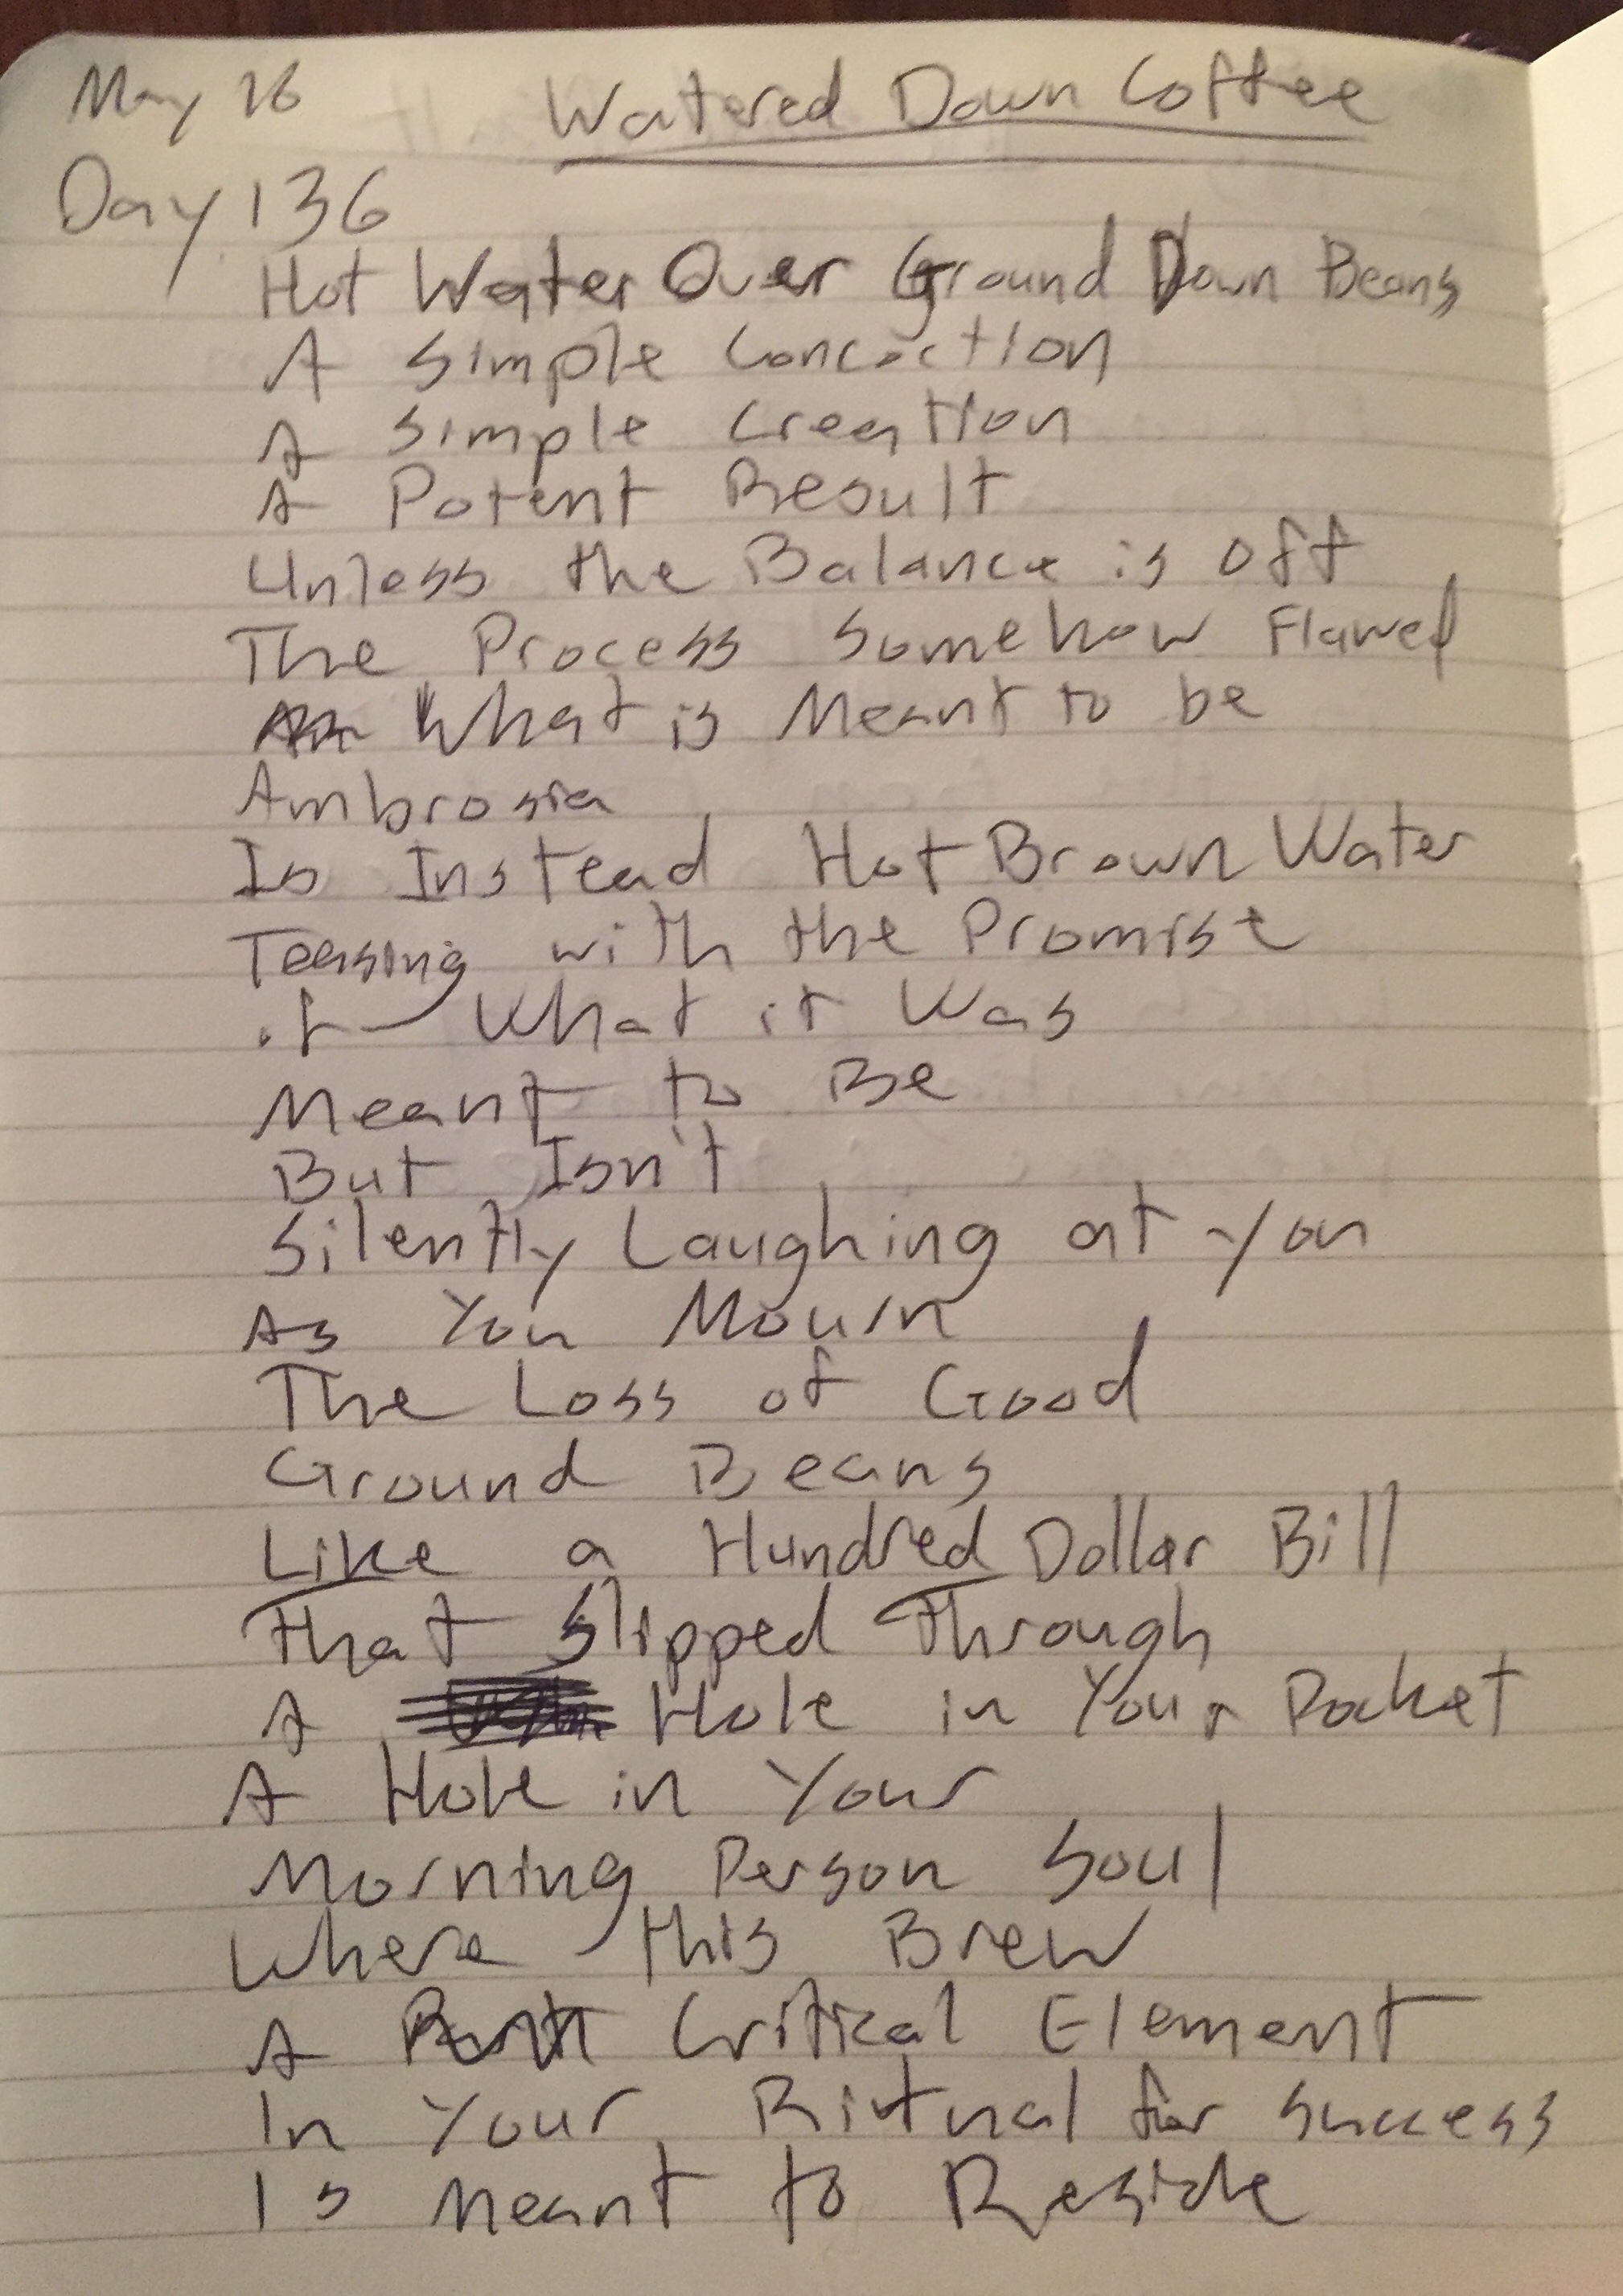 May 16 Watered Down Coffee
Day 136
Hot Water Over Ground Down Beans
A Simple Concoction
A Simple Creation
A Potent Result
Unless the Balance is off
The Process Somehow Flawed
What is Meant to be
Ambrosia
Is Instead Hot Brown Water
Teasing with the Promise
of What it Was
Meant to Be
But Isn't
Silently Laughing at you
As You Mourn
The Loss of Good
Ground Beans
Like a Hundred Dollar Bill
That Slipped Through
A Hole in Your Pocket
A Hole in Your
Morning Person Soul
Where this Brew
A Critical Element
In Your Ritual for Success
Is Meant to Reside